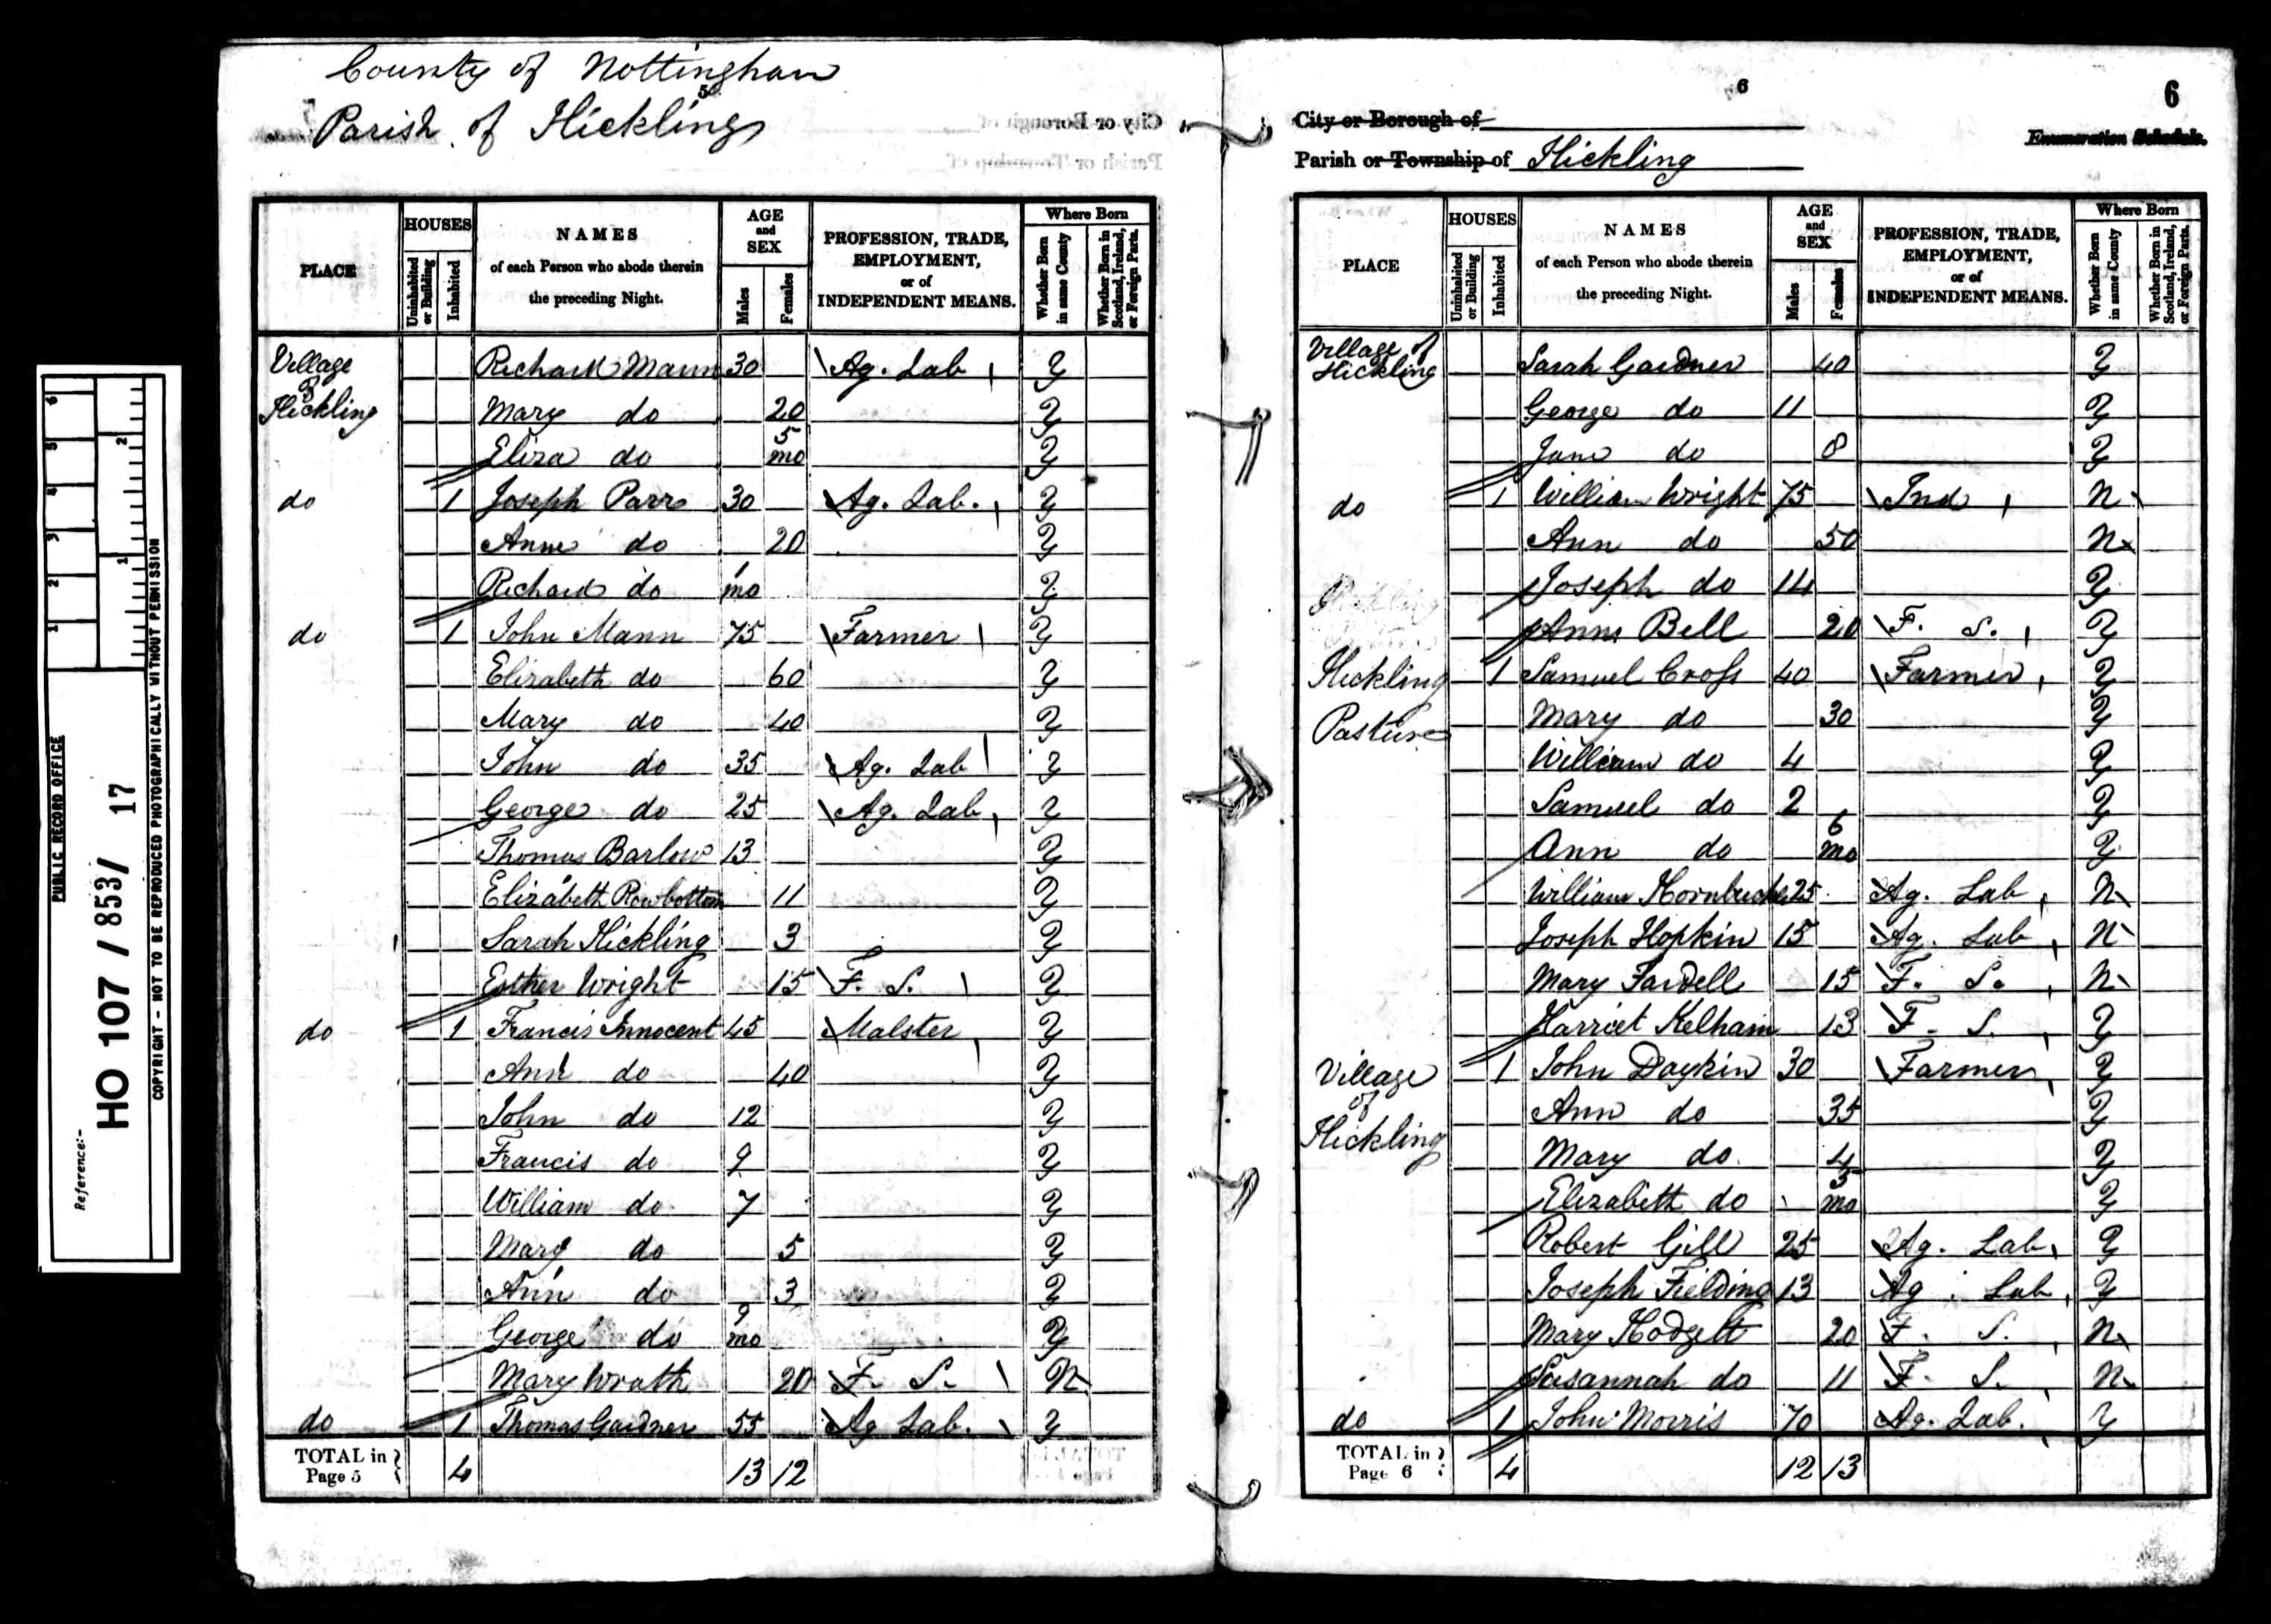 County of Nottingham
Parish of Hickling
5
PLACE HOUSES Uninhabited or Building Inhabited NAMES of each Person who abode therein the preceding Night. AGE and SEX Males Females PROFESSION, TRADE, EMPLOYMENT, or of INDEPENDENT MEANS. Where Born Whether Born in same County Whether Born in Scotland, Ireland, or Foreign Parts.
Village Richard Mann 30 Ag. Lab Y
Hickling Mary do 20 Y
Eliza do 5 mo Y
do 1 Joseph Parr 30 Ag. Lab. Y
Anne do 20 Y
Richard do 1 mo Y
do 1 John Mann 75 Farmer Y
Elizabeth do 60 Y
Mary do 40 Y
John do 35 Ag. Lab Y
George do 25 Ag. Lab Y
Thomas Barlow 13 Y
Elizabeth Rowbottom 11 Y
Sarah Hickling 3 Y
Esther Wright 15 F. S. Y
do 1 Francis Innocent 45 Malster Y
Ann do 40 Y
John do 12 Y
Francis do 9 Y
William do 7 Y
Mary do 5 Y
Ann do 3 Y
George do 9 mo Y
Mary Wrath 20 F. S. N
do 1 Thomas Gardner 55 Ag Lab. Y
TOTAL in Page 5 4 13 12
6
6
City or Borough of
Enumeration Schedule.
Parish or Township of Hickling
PLACE HOUSES Uninhabited or Building Inhabited NAMES of each Person who abode therein the preceding Night. AGE and SEX Males Females PROFESSION, TRADE, EMPLOYMENT, or of INDEPENDENT MEANS. Where Born Whether Born in same County Whether Born in Scotland, Ireland, or Foreign Parts.
Village of Hickling Sarah Gardner 40 Y
George do 11 Y
Jane do 8 Y
do 1 William Wright 75 Ind N
Ann do 50 N
Joseph do 14 Y
Anne Bell 20 F. S. Y
Hickling 1 Samuel Cross 40 Farmer Y
Pasture Mary do 30 Y
William do 4 Y
Samuel do 2 Y
Ann do 6 mo Y
William Hornbuckle 25 Ag. Lab N
Joseph Hopkin 15 Ag. Lab N
Mary Fardell 15 F. S. N
Harriet Kelham 13 F. S. Y
Village 1 John Daykin 30 Farmer Y
of Ann do 35 Y
Hickling Mary do 4 Y
Elizabeth do 5 mo Y
Robert Gill 25 Ag. Lab Y
Joseph Fielding 13 Ag. Lab Y
Mary Hodgett 20 F. S. N
Susannah do 11 F. S. N
do 1 John Morris 70 Ag. Lab. Y
TOTAL in Page 6 4 12 13
PUBLIC RECORD OFFICE
Reference:-
HO 107 / 853 / 17
COPYRIGHT - NOT TO BE REPRODUCED PHOTOGRAPHICALLY WITHOUT PERMISSION
1 2 3 4 5 6
1 2